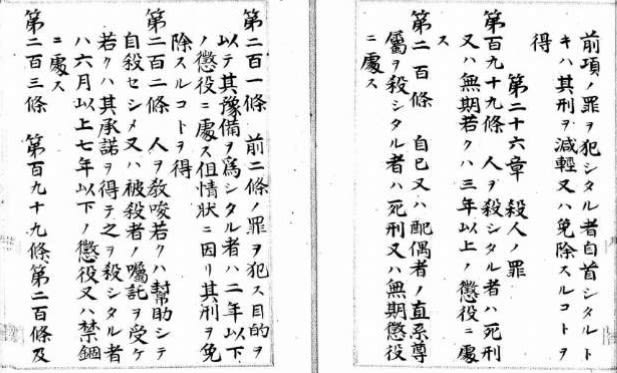 前項ノ罪ヲ犯シタル者自首シタルト
キハ其刑ヲ減輕又ハ免除スルコトヲ
得
第二十六章 殺人ノ罪
第百九十九條 人ヲ殺シタル者ハ死刑
又ハ無期若クハ三年以上ノ懲役ニ處ス
第二百條 自己又ハ配偶者ノ直系尊
屬ヲ殺シタル者ハ死刑又ハ無期懲役
ニ處ス
第二百一條 前二條ノ罪ヲ犯ス目的ヲ
以テ其豫備ヲ爲シタル者ハ二年以下
ノ懲役ニ處ス但情狀ニ因リ其刑ヲ免
除スルコトヲ得
第二百二條 人ヲ教唆若クハ幇助シテ
自殺セシメ又ハ被殺者ノ囑託ヲ受ケ
若クハ其承諾ヲ得テ之ヲ殺シタル者
ハ六月以上七年以下ノ懲役又ハ禁錮
ニ處ス
第二百三條 第百九十九條第二百條及